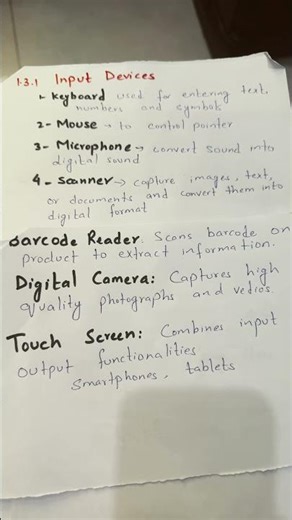 1.3.1 Input Devices
1- Keyboard used for entering text,
numbers and symbols
2- Mouse → to control pointer
3- Microphone → convert sound into
digital sound
4- Scanner → capture images, text,
or documents and convert them into
digital format
Barcode Reader: Scans barcode on
product to extract information.
Digital Camera: Captures high
quality photographs and vedios.
Touch Screen: Combines input
output functionalities
Smartphones, tablets